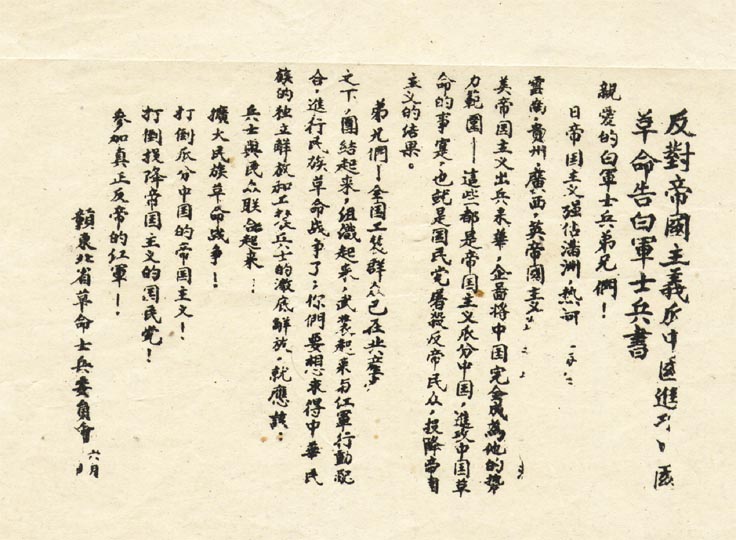 反對帝國主義瓜中國進
革命告白軍士兵書
親愛的白軍士兵弟兄們！
日帝国主义强佔滿洲，热河
雲南，貴州，廣西，英帝國主义
美帝国主义出兵来華，企圖将中国完全成為他的势
力範圍——這些都是帝国主义瓜分中国，進攻中国革
命的事寔，也就是国民党屠殺反帝民众，投降帝国
主义的结果。
弟兄們！全国工农群众已在共产
之下團结起来，組織起来，武装起来与紅軍行動配
合，進行民族革命战争了，你們要想来得中華民
族的独立解放和工农兵士的澈底解放，就應該：
兵士與民众联合起来
擴大民族革命战争！
打倒瓜分中国的帝国主义！
打倒投降帝国主义的国民党！
参加真正反帝的红軍！
贛東北省革命士兵委員會
六月